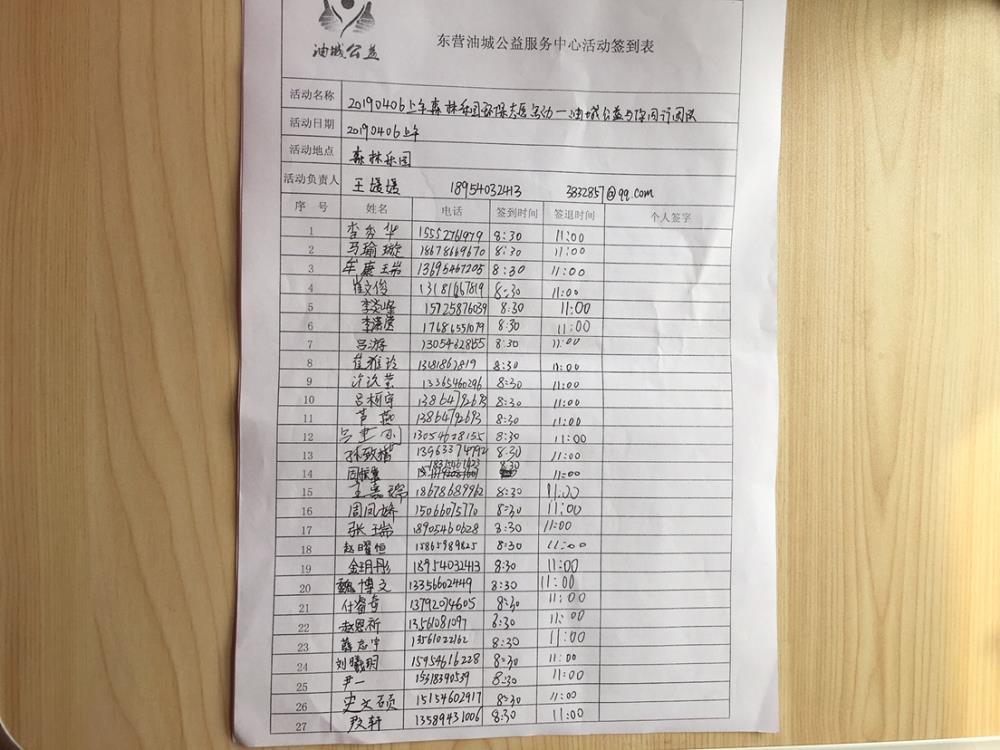 油城公益
东营油城公益服务中心活动签到表
活动名称 20190406上午森林乐园环保志愿活动—油城公益与你同行团队
活动日期 20190406上午
活动地点 森林乐园
活动负责人 王媛媛 18954032413 3832857@qq.com
序 号 姓名 电话 签到时间 签退时间 个人签字
1 李秀华 15552761979 8:30 11:00
2 马瑜璇 18678669670 8:30 11:00
3 牟康瑞 13695467205 8:30 11:00
4 崔文俊 13181667819 8:30 11:00
5 李炎峰 15725876039 8:30 11:00
6 李潇滢 17686551079 8:30 11:00
7 吕游 13054628155 8:30 11:00
8 崔雅玲 13181862819 8:30 11:00
9 许汝萱 13365460296 8:30 11:00
10 吕柯宇 13864792693 8:30 11:00
11 芦燕 13864792693 8:30 11:00
12 13054628155 8:30 11:00
13 张致揩 13963374792 8:30 11:00
14 8:30 11:00
15 王嘉瑞 18678689962 8:30 11:00
16 周凤娇 15066075770 8:30 11:00
17 张瑞 18905460628 8:30 11:00
18 赵曜恒 15865989825 8:30 11:00
19 金玥彤 18954032413 8:30 11:00
20 魏博文 13356602449 8:30 11:00
21 付睿奇 13792074605 8:30 11:00
22 赵恩祈 13561081097 8:30 11:00
23 薛志宇 13561022162 8:30 11:00
24 刘曦玥 15954616228 8:30 11:00
25 尹一 15318390539 8:30 11:00
26 史文硕 15154602917 8:30 11:00
27 段轩 13589431006 8:30 11:00